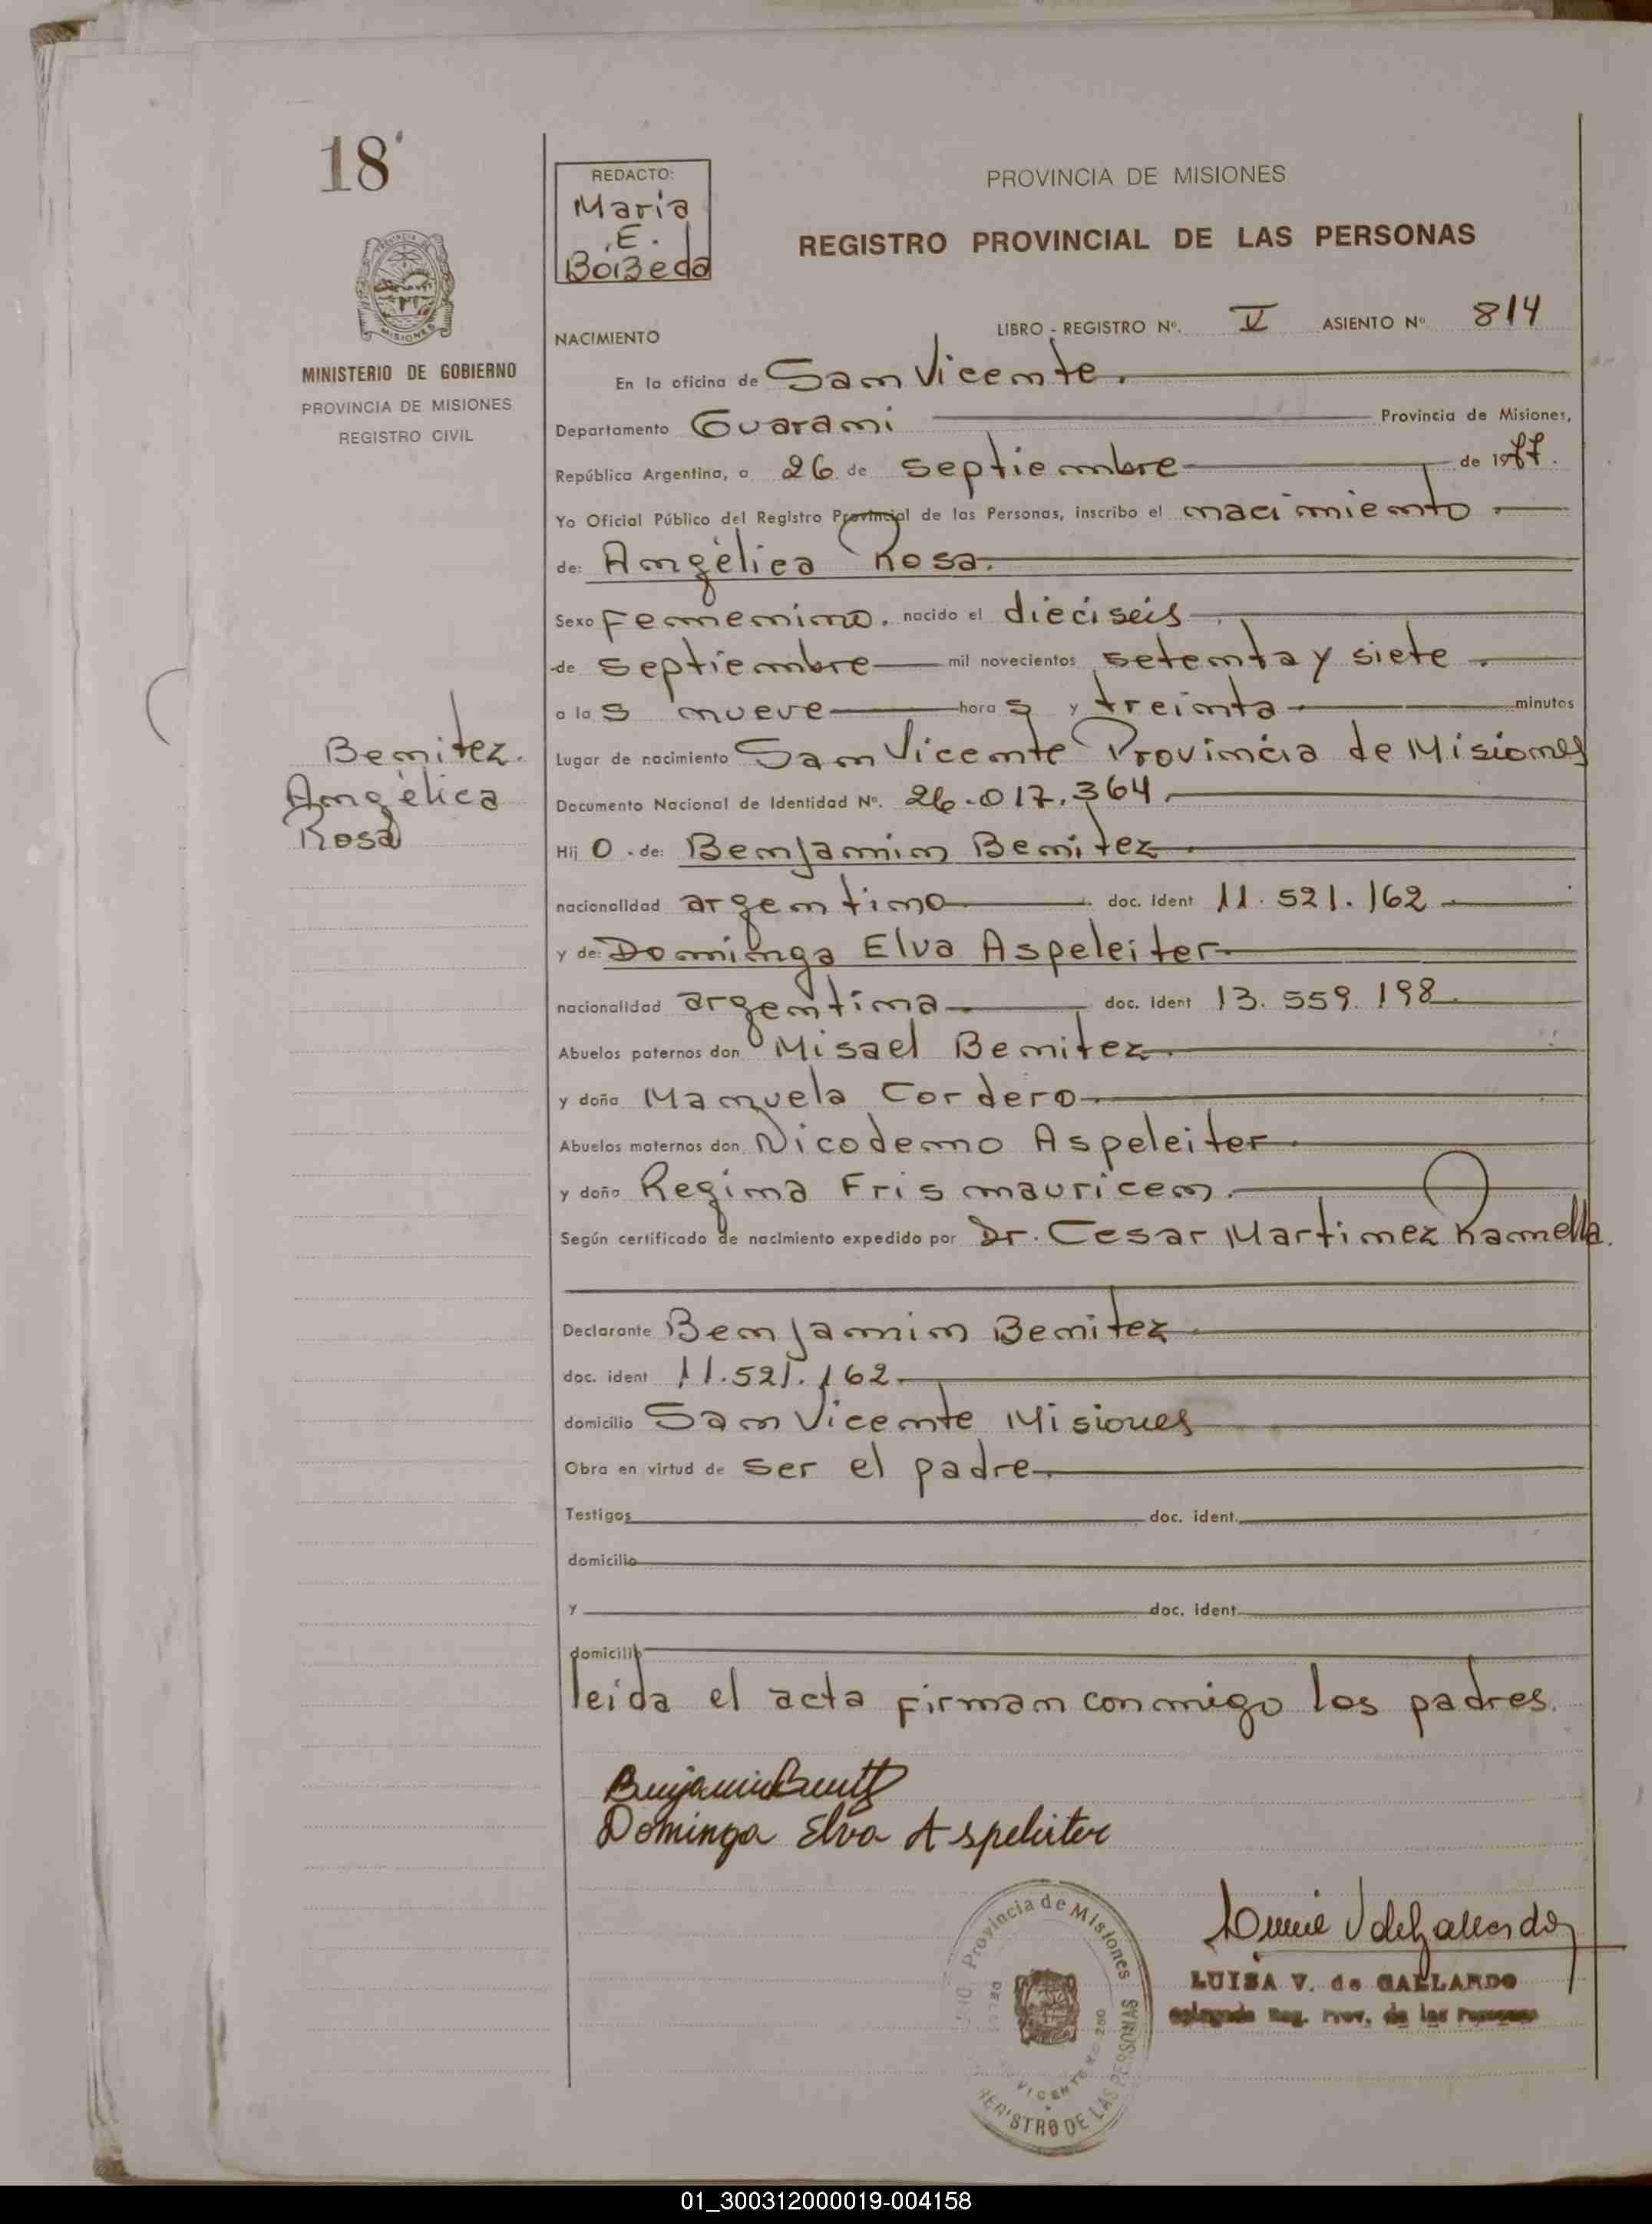 18
REDACTO:
Maria
E.
Boizeda
PROVINCIA DE MISIONES
REGISTRO PROVINCIAL DE LAS PERSONAS
PROVINCIA DE
MISIONES
MINISTERIO DE GOBIERNO
PROVINCIA DE MISIONES
REGISTRO CIVIL
NACIMIENTO LIBRO - REGISTRO Nº. V ASIENTO Nº 814
En la oficina de San Vicente.
Departamento Guarani Provincia de Misiones,
República Argentina, a 26 de septiembre de 1977.
Yo Oficial Público del Registro Provincial de las Personas, inscribo el nacimiento
de: Angélica Rosa.
Sexo Femenino. nacido el dieciseis
de septiembre mil novecientos setenta y siete.
a las nueve horas y treinta minutos
Lugar de nacimiento San Vicente Provincia de Misiones
Documento Nacional de Identidad Nº. 26.017.364
Benitez.
Angélica
Rosa
Hij o de: Benjamin Benitez
nacionalidad argentino doc. ident 11.521.162
y de: Dominga Elva Aspeleiter
nacionalidad argentina doc. ident 13.559.198
Abuelos paternos don Misael Benitez
y doña Manuela Cordero
Abuelos maternos don Nicodemo Aspeleiter
y doña Regina Fris mauricen.
Según certificado de nacimiento expedido por Dr. Cesar Martinez Ramella.
Declarante Benjamin Benitez
doc. ident 11.521.162
domicilio San Vicente Misiones
Obra en virtud de ser el padre.
Testigos doc. ident.
domicilio
y doc. ident.
domicilio
leida el acta firman conmigo los padres.
Benjamin Benitz
Dominga Elva Aspeleiter
Provincia de Misiones
REGISTRO DE LAS PERSONAS
LUISA V. de GALLARDO
Delegada Reg. Prov. de las Personas
01_300312000019-004158